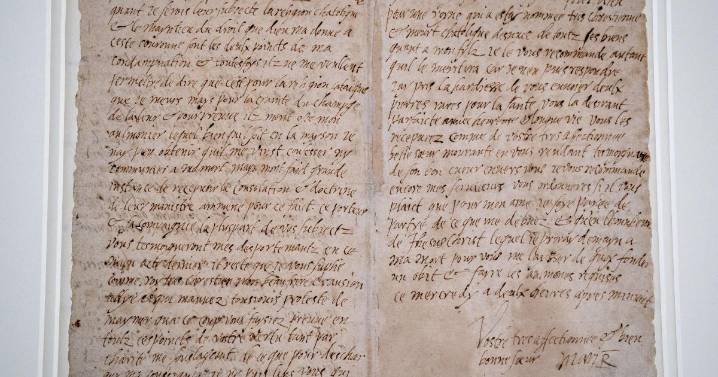 quant je seroys leur subjecte la religion chatolique
& le mayntien du droit que Dieu m'a donné a
ceste couronne sont les deulx points de ma
condampnation & toutesfoys ilz ne me veullent
permettre de dire que c'est pour la religion catolique
que je meurs mays pour la crainte du champge
de la leur & pour preuve ilz m'ont osté mon
aulmonier lequel bien quil soit en la mayson je
nay peu obtenir quil me vinst confesser ny
communier a ma mort mays mont faict grande
instance de recepvoir la consolation & doctrine
de leur ministre ammené pour ce faict ce porteur
& sa compaignie la pluspart de vos subjectz
vous tesmoigneront mes desportemantz en ce
mien acte dernier il reste que je vous suplie
comme roy tres chrestien mon beau frere & ansien
allyé & qui mavez tousjours protesté de
maymer qua ce coup vous faysiez preuve en
toutz ces points de vostre vertu tant par
charité me soulageant de ce que pour deschar
ger ma conssiance je ne puis sans vous qui
pour une royne qui a esté nommee tres chrestienne
& meurt chatolique desnuee de toutz ses biens
quant a mon filz je le vous recommande autant
quil le meritera car je nen puis respondre
jay pris la hardiesse de vous envoier deulx
pierres rares pour la santé vous la desirant
parfaicte avec heureuse & longue vie vous les
recepvrez comme de vostre tres affectionnee
belle soeur mourante en vous rendant tesmoygnasge
de son bon cueur envers vous je vous recommande
encore mes serviteurs vous ordonnerez si il vous
plaict que pour mon ame je soye payee de
partye de ce que me debvez & quen lhonneur
de Jhesus Christ lequel je priray demayn a
ma mort pour vous me laisser de quoy fonder
un obit & faire les aumones requises
ce mercredy a deulx heures apres minuit
Vostre tres affectionnee & bien
bonne soeur MARI R